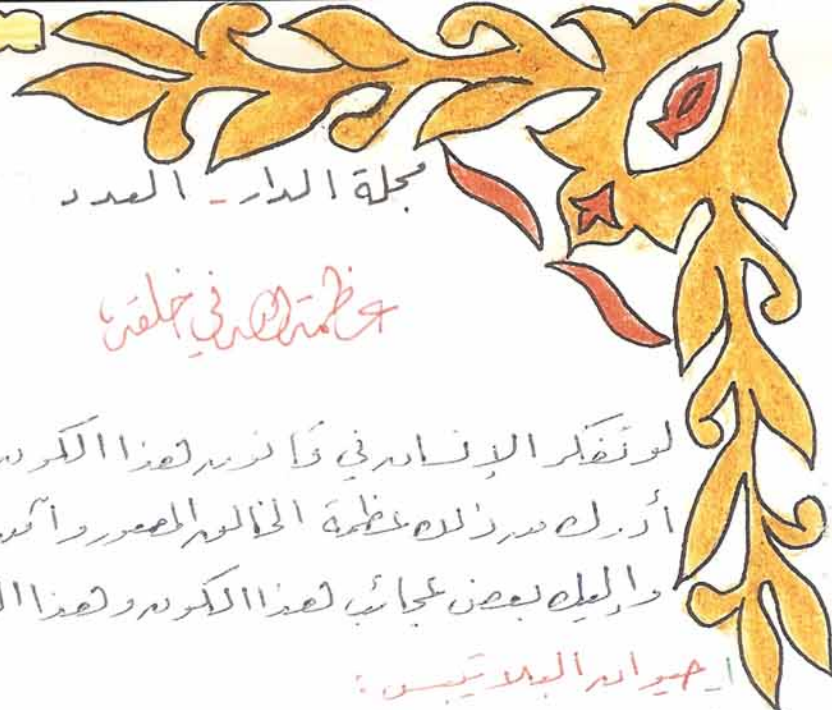 مجلة الدار - العدد
عظمة الله في خلقه
لو تفكر الإنسان في قانون هذا الكون
أدرك من ذلك عظمة الخالق المصور وآمن
وإليك بعض عجائب هذا الكون وهذا
1- حيوان البلاتيبس: